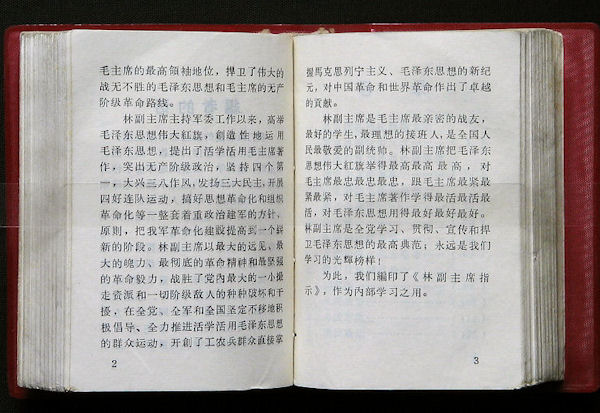 毛主席的最高領袖地位，捍卫了伟大的
战无不胜的毛泽东思想和毛主席的无产
阶级革命路线。
林副主席主持军委工作以来，高举
毛泽东思想伟大紅旗，創造性地运用
毛泽东思想，提出了活学活用毛主席著
作，突出无产阶级政治，坚持四个第
一，大兴三八作风，发扬三大民主，开展
四好连队运动，搞好思想革命化和组织
革命化等一整套着重政治建军的方針、
原則，把我军革命化建設提高到一个崭
新的阶段。林副主席以最大的远见、最
大的魄力、最彻底的革命精神和最坚强
的革命毅力，战胜了党內最大的一小撮
走资派和一切阶级敌人的种种破坏和干
扰，在全党、全军和全国坚定不移地积
极倡导、全力推进活学活用毛泽东思想
的群众运动，开創了工农兵群众直接掌
2
握馬克思列宁主义、毛泽东思想的新纪
元，对中国革命和世界革命作出了卓越
的貢献。
林副主席是毛主席最亲密的战友，
最好的学生，最理想的接班人，是全国人
民最敬爱的副统帅。林副主席把毛泽东
思想伟大紅旗举得最高最高最高，对
毛主席最忠最忠最忠，跟毛主席最紧最
紧最紧，对毛主席著作学得最活最活最
活，对毛泽东思想用得最好最好最好。
林副主席是全党学习、贯彻、宣传和捍
卫毛泽东思想的最高典范；永远是我们
学习的光輝榜样！
为此，我们編印了《林副主席指
示》，作为內部学习之用。
3